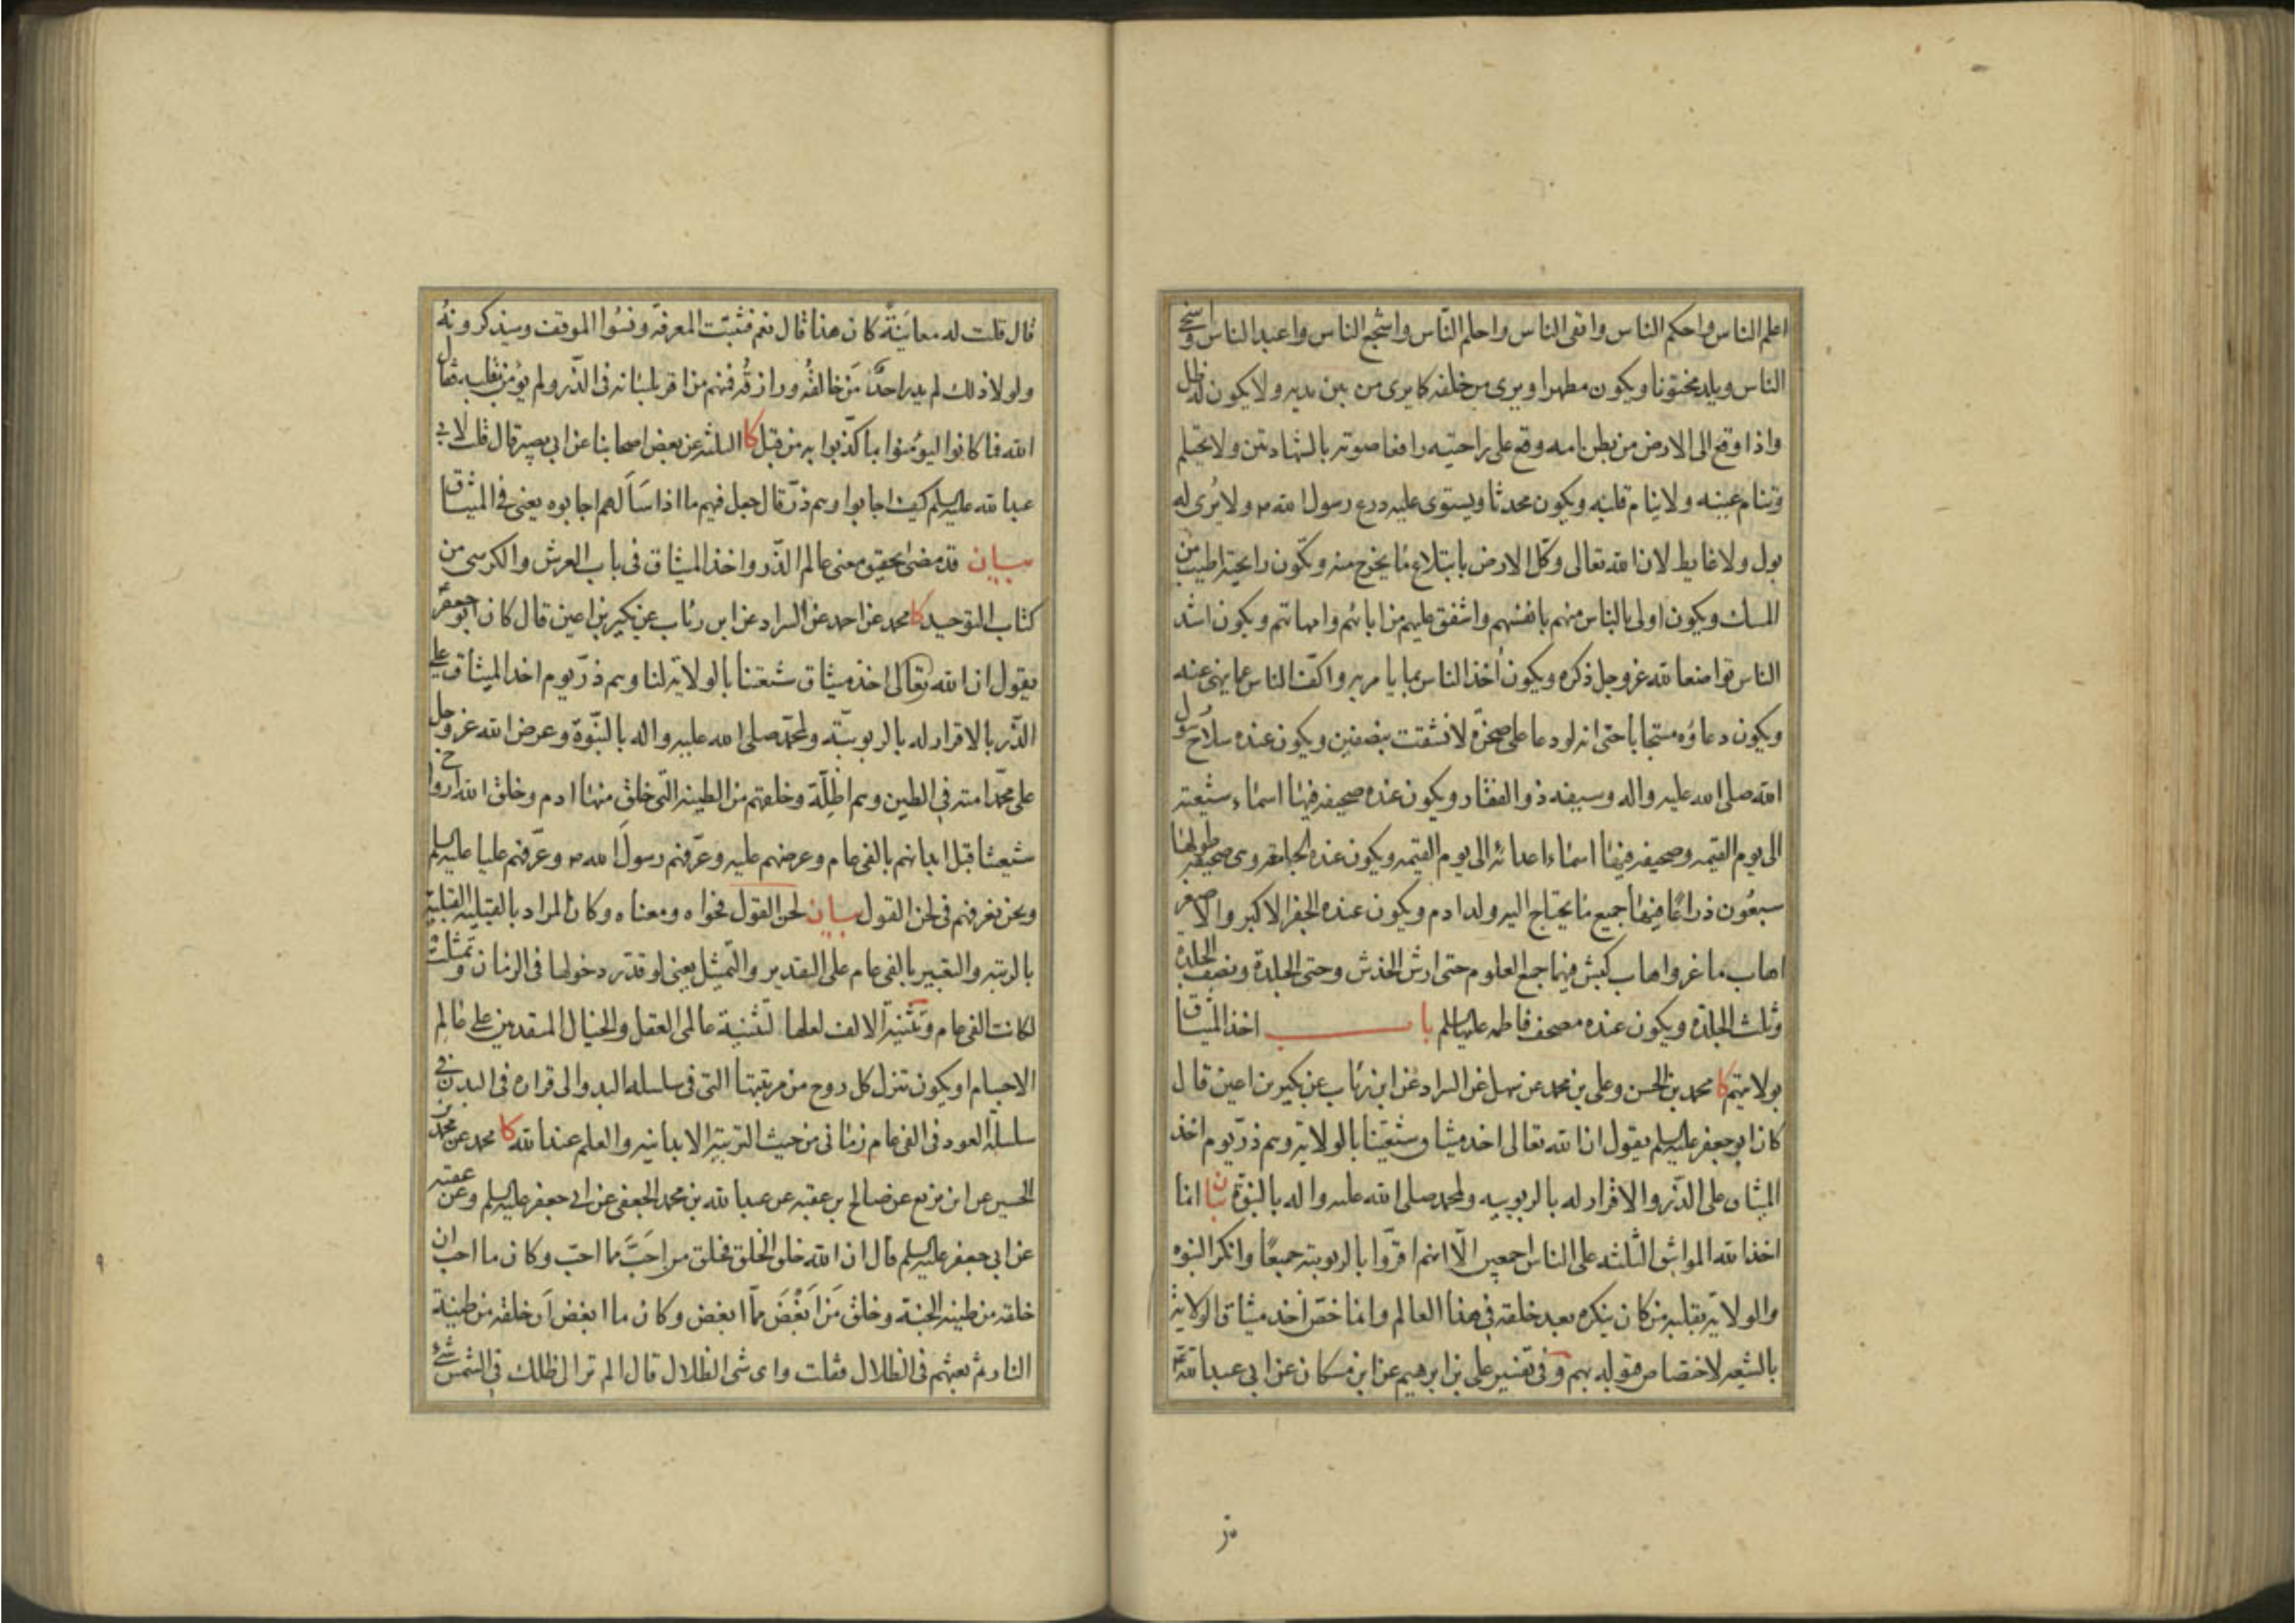 اعلم الناس واحكم الناس واتقى الناس واحلم النّاس واشجع الناس واعبد الناس واسخى
الناس ويلد مختونا ويكون مطهرا ويرى من خلفه كا يرى من بين يديه ولا يكون له ظل
واذا وقع الى الارض من بطن امه وقع على راحتيه رافعا صوته بالشهادتين ولا يحتلم
وتنام عينه ولا ينام قلبه ويكون محدثا ويستوى عليه درع رسول الله ص ولا يُرى له
بول ولا غايط لان الله تعالى وكّل الارض بابتلاع ما يخرج منه وتكون رايحته اطيب من
المسك ويكون اولى بالناس منهم بانفسهم واشفق عليهم من ابائهم وامهاتهم ويكون اشد
الناس تواضعا لله عز وجل ذكره ويكون أخذ الناس بما يامر به واكفّ الناس عما ينهى عنه
ويكون دعاؤه مستجابا حتى انه لو دعا على صخرة لانشقت بنصفين ويكون عنده سلاح رسول
الله صلى الله عليه واله وسيفه ذو الفقار ويكون عنده صحيفه فيها اسماء شيعته
الى يوم القيمه وصحيفه فيها اسماء اعدائه الى يوم القيمه ويكون عنده الجامعه وهى صحيفه طولها
سبعُون ذراعًا فيها جميع ما يحتاج اليه ولد ادم ويكون عنده الجفر الاكبر والاصغر
اهاب ماعز واهاب كبش فيهما جميع العلوم حتى ارش الخدش وحتى الجلدة ونصف الجلدة
وثلث الجلدة ويكون عنده مصحف فاطمه عليها السلم باب اخذ الميثاق
بولايتهم كا محمد بن الحسن وعلى بن محمد عن سهل عن السراد عن ابن رئاب عن بكير بن اعين قال
كان ابو جعفر عليه السلم يقول ان الله تعالى اخذ ميثاق شيعتنا بالولاية وهم ذرّ يوم اخذ
الميثاق على الذّر والاقرار له بالربوبيه ولمحمد صلى الله عليه واله بالنبوّة بيان انما
اخذ الله المواثيق الثلثه على الناس اجمعين الّا انهم اقرّوا بالربوبيته جميعًا وانكر النبوه
والولاية بقلبه من كان ينكره بعد خلقه فى هذا العالم وانما خصّ اخذ ميثاق الولاية
بالشيعه لاختصاص قبوله بهم وفى تفسير على بن ابرهيم عن ابن مسكان عن ابى عبد الله ع
قال قلت له معاينةً كان هذا قال نعم فثبتت المعرفة ونسُوا الموقف وسيذكرونهُ
ولولا ذلك لم يدر احدٌ مَن خالقُه ورازقُه فمنهم من اقر بلسانه فى الذّر ولم يؤمن بقلبه فقال
الله فما كانوا ليؤمنوا بما كذّبوا به من قبل كا الثلثه عن بعض اصحابنا عن ابى بصير قال قلت لابى
عبد الله عليه السلم كيف اجابوا وهم ذرّ قال جعل فيهم ما اذا سَألهم اجابوه يعنى فى الميثاق
بيان قد مضى تحقيق معنى عالم الذّر واخذ الميثاق فى باب العرش والكرسى من
كتاب التوحيد كا محمد عن احمد عن السراد عن ابن رئاب عن بكير بن اعين قال كان ابو جعفر
يقول ان الله تعالى اخذ ميثاق شيعتنا بالولاية لنا وهم ذرّ يوم اخذ الميثاق على
الذّر بالاقرار له بالربوبيّة ولمحمّد صلى الله عليه واله بالنبّوة وعرض الله عز وجل
على محمّد امته فى الطين وهم اظلّة وخلقهم من الطينه التى خلق منها ادم وخلق الله ارواح
شيعتنا قبل ابدانهم بالفى عام وعرضهم عليه وعرّفهم رسول الله ص وعرّفهم عليا عليه السلم
ونحن نعرفهم فى لحن القول بيان لحن القول فحواه ومعناه وكان المراد بالقبليه القبلية
بالرتبه والتعبير بالفى عام على التقدير والتمثيل يعنى لو قدّر دخولها فى الزمان وتمثلت
لكانت الفى عام وتثنية الالف لعلها لتثنية عالمى العقل والخيال المتقدمين على عالم
الاجسام او يكون تنزل كل روح من مرتبتها التى فى سلسله البدو الى قراره فى البدن فى
سلسلة العود فى الفى عام زمانى من حيث التربية الابدانيه والعلم عند الله كا محمد عن محمد بن
الحسين عن ابن بزيع عن صالح بن عقبه عن عبد الله بن محمد الجعفى عن ابى جعفر عليه السلم وعن عقبه
عن ابى جعفر عليه السلم قال ان الله خلق الخلق فخلق من احَبّ مما احبّ وكان ما احب ان
خلقه من طينه الجنة وخلق مَن اَبْغَضَ ممّا ابغض وكان ما ابغض اَن خلقه من طينة
النار ثم بعثهم فى الظلال فقلت واى شى الظلال قال الم تر الى ظلك فى الشمس شئ